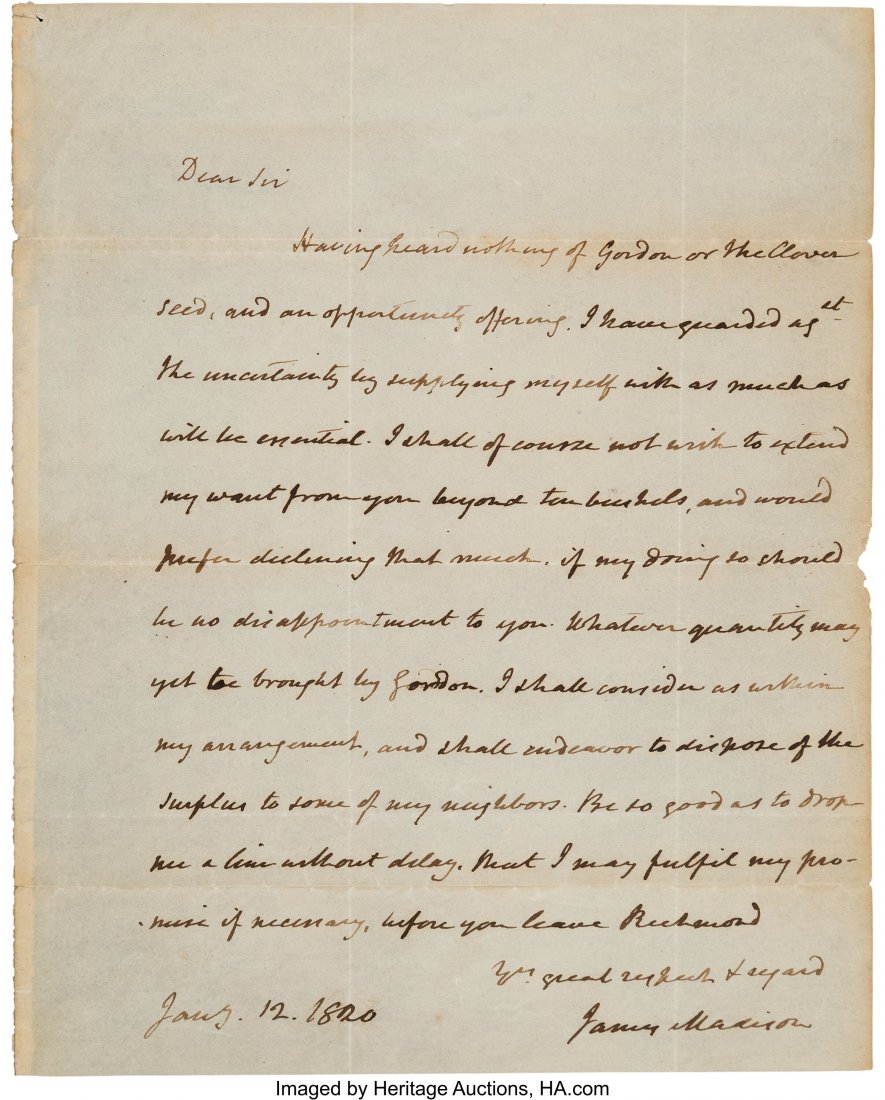 Dear Sir
Having heard nothing of Gordon or the Clover
seed, and an opportunity offering, I have guarded agst
the uncertainty by supplying myself with as much as
will be essential. I shall of course not wish to extend
my want from you beyond ten bushels, and would
prefer declining that much, if my doing so should
be no disappointment to you. Whatever quantity may
yet be brought by Gordon, I shall consider as within
my arrangement, and shall endeavor to dispose of the
surplus to some of my neighbors. Be so good as to drop
me a line without delay, that I may fulfil my pro-
-mise if necessary, before you leave Richmond
Yrs. great respect & regard
Jany. 12. 1820
James Madison
Imaged by Heritage Auctions, HA.com